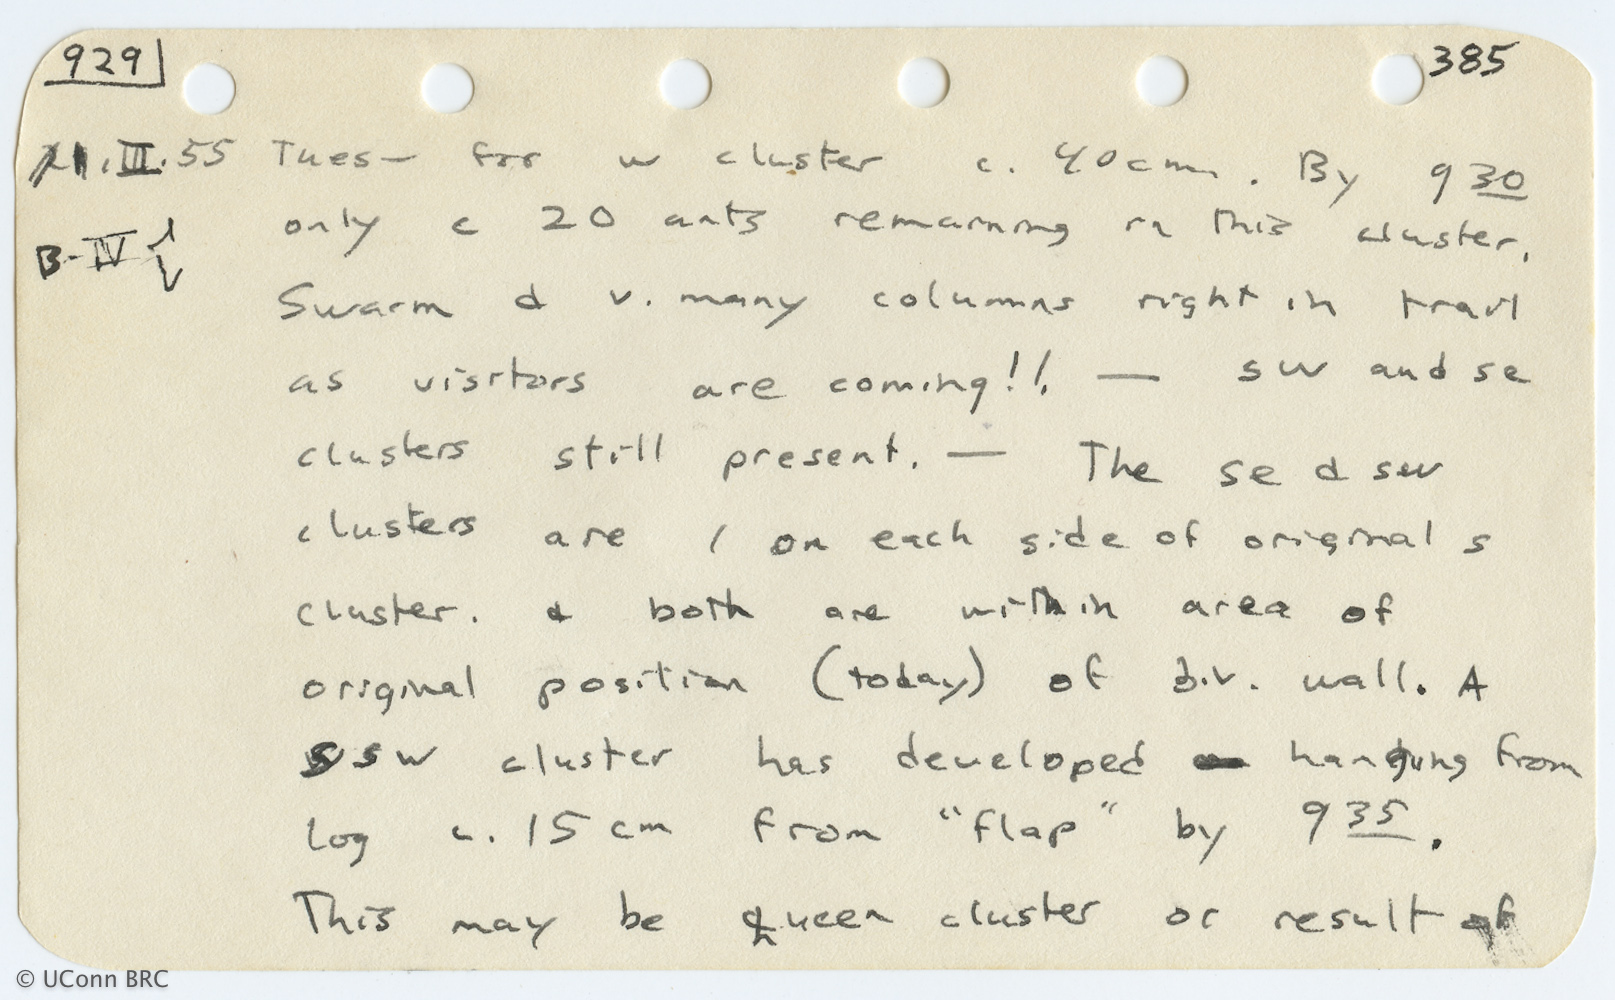 929 385
21.III.55 Tues— for w cluster c. 40cm. By 930
B-IV only c 20 ants remaining in this cluster.
Swarm & v. many columns right in trail
as visitors are coming!!. — sw and se
clusters still present. — The se & sw
clusters are 1 on each side of original s
cluster. & both are within area of
original position (today) of biv. wall. A
ssw cluster has developed hanging from
log c. 15 cm from "flap" by 935.
This may be queen cluster or result of
© UConn BRC